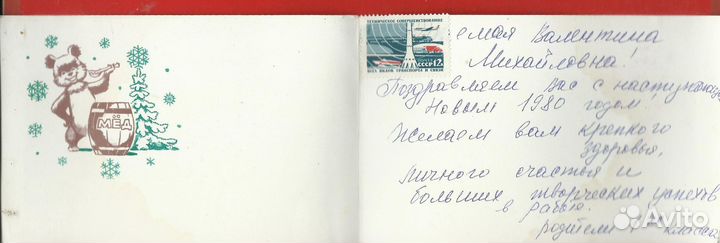 МЁД
ТЕХНИЧЕСКОЕ СОВЕРШЕНСТВОВАНИЕ
ПОЧТА
СССР 12к
ВСЕХ ВИДОВ ТРАНСПОРТА И СВЯЗИ
емая Валентина
Михайловна!
Поздравляем Вас с наступающ
Новым 1980 годом!
Желаем вам крепкого
здоровья,
личного счастья и
больших творческих успехов
в работе.
родители класса
Avito